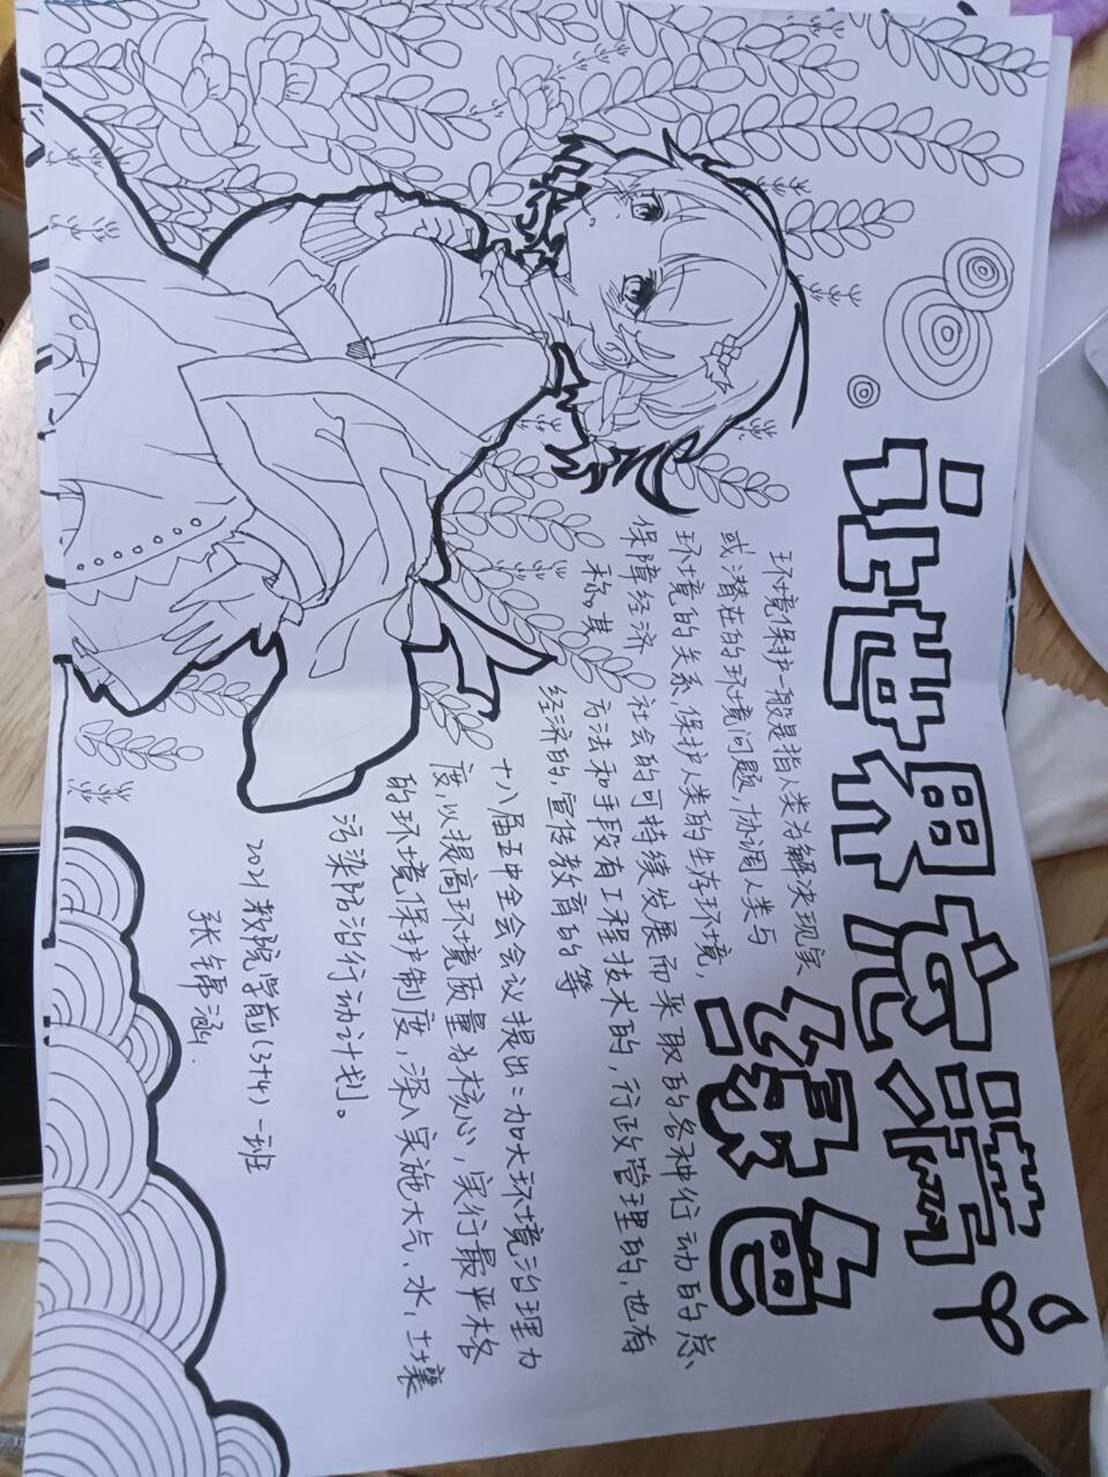 让世界充满
绿色
环境保护一般是指人类为解决现实
或潜在的环境问题，协调人类与
环境的关系，保护人类的生存环境，
保障经济社会的可持续发展而采取的各种行动的总
称。其方法和手段有工程技术的，行政管理的，也有
经济的，宣传教育的等
十八届五中全会会议提出：加大环境治理力
度，以提高环境质量为核心，实行最严格
的环境保护制度，深入实施大气、水，土壤
污染防治行动计划。
2021教院学前(3+4)一班
张锦涵.